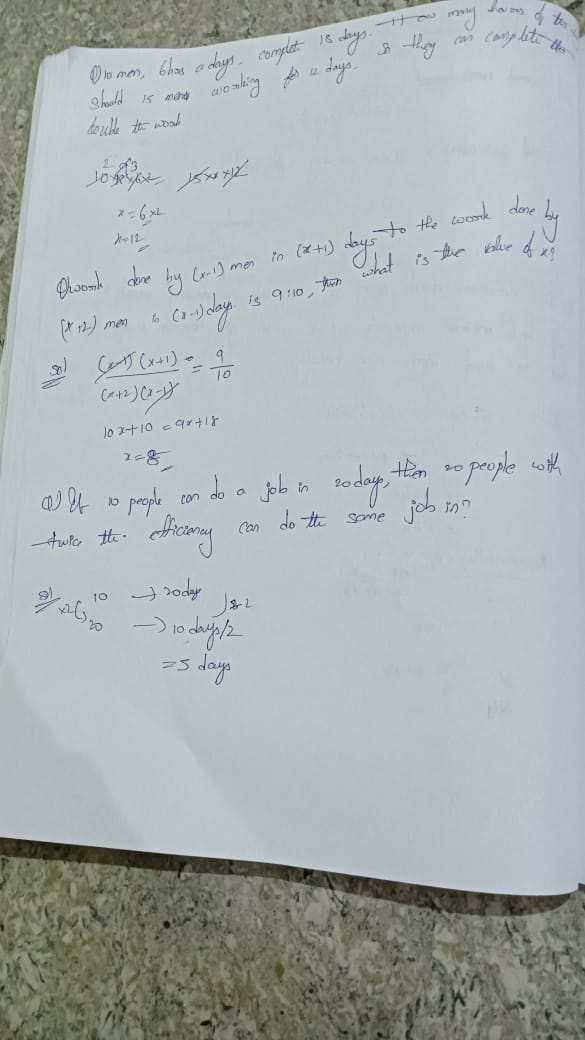 Q) 10 men, 6 hrs a days. complet 18 days. How many hours of
should 15 mens working for 12 days. so they can complete
double the work
10×18×6×2 = 15×x×12
x = 6×2
x = 12
Q) work done by (x-1) men in (x+1) days to the work done by
(x+2) men in (x-1) days. is 9:10, then what is the value of x?
Sol) (x-1)(x+1) = 9
(x+2)(x-1) 10
10x+10 = 9x+18
x = 8
Q) If 10 people can do a job in 20 days, then 20 people with
twice the efficiency can do the same job in?
Sol) 10 → 20 day
×2 20 → 10 days/2
= 5 days